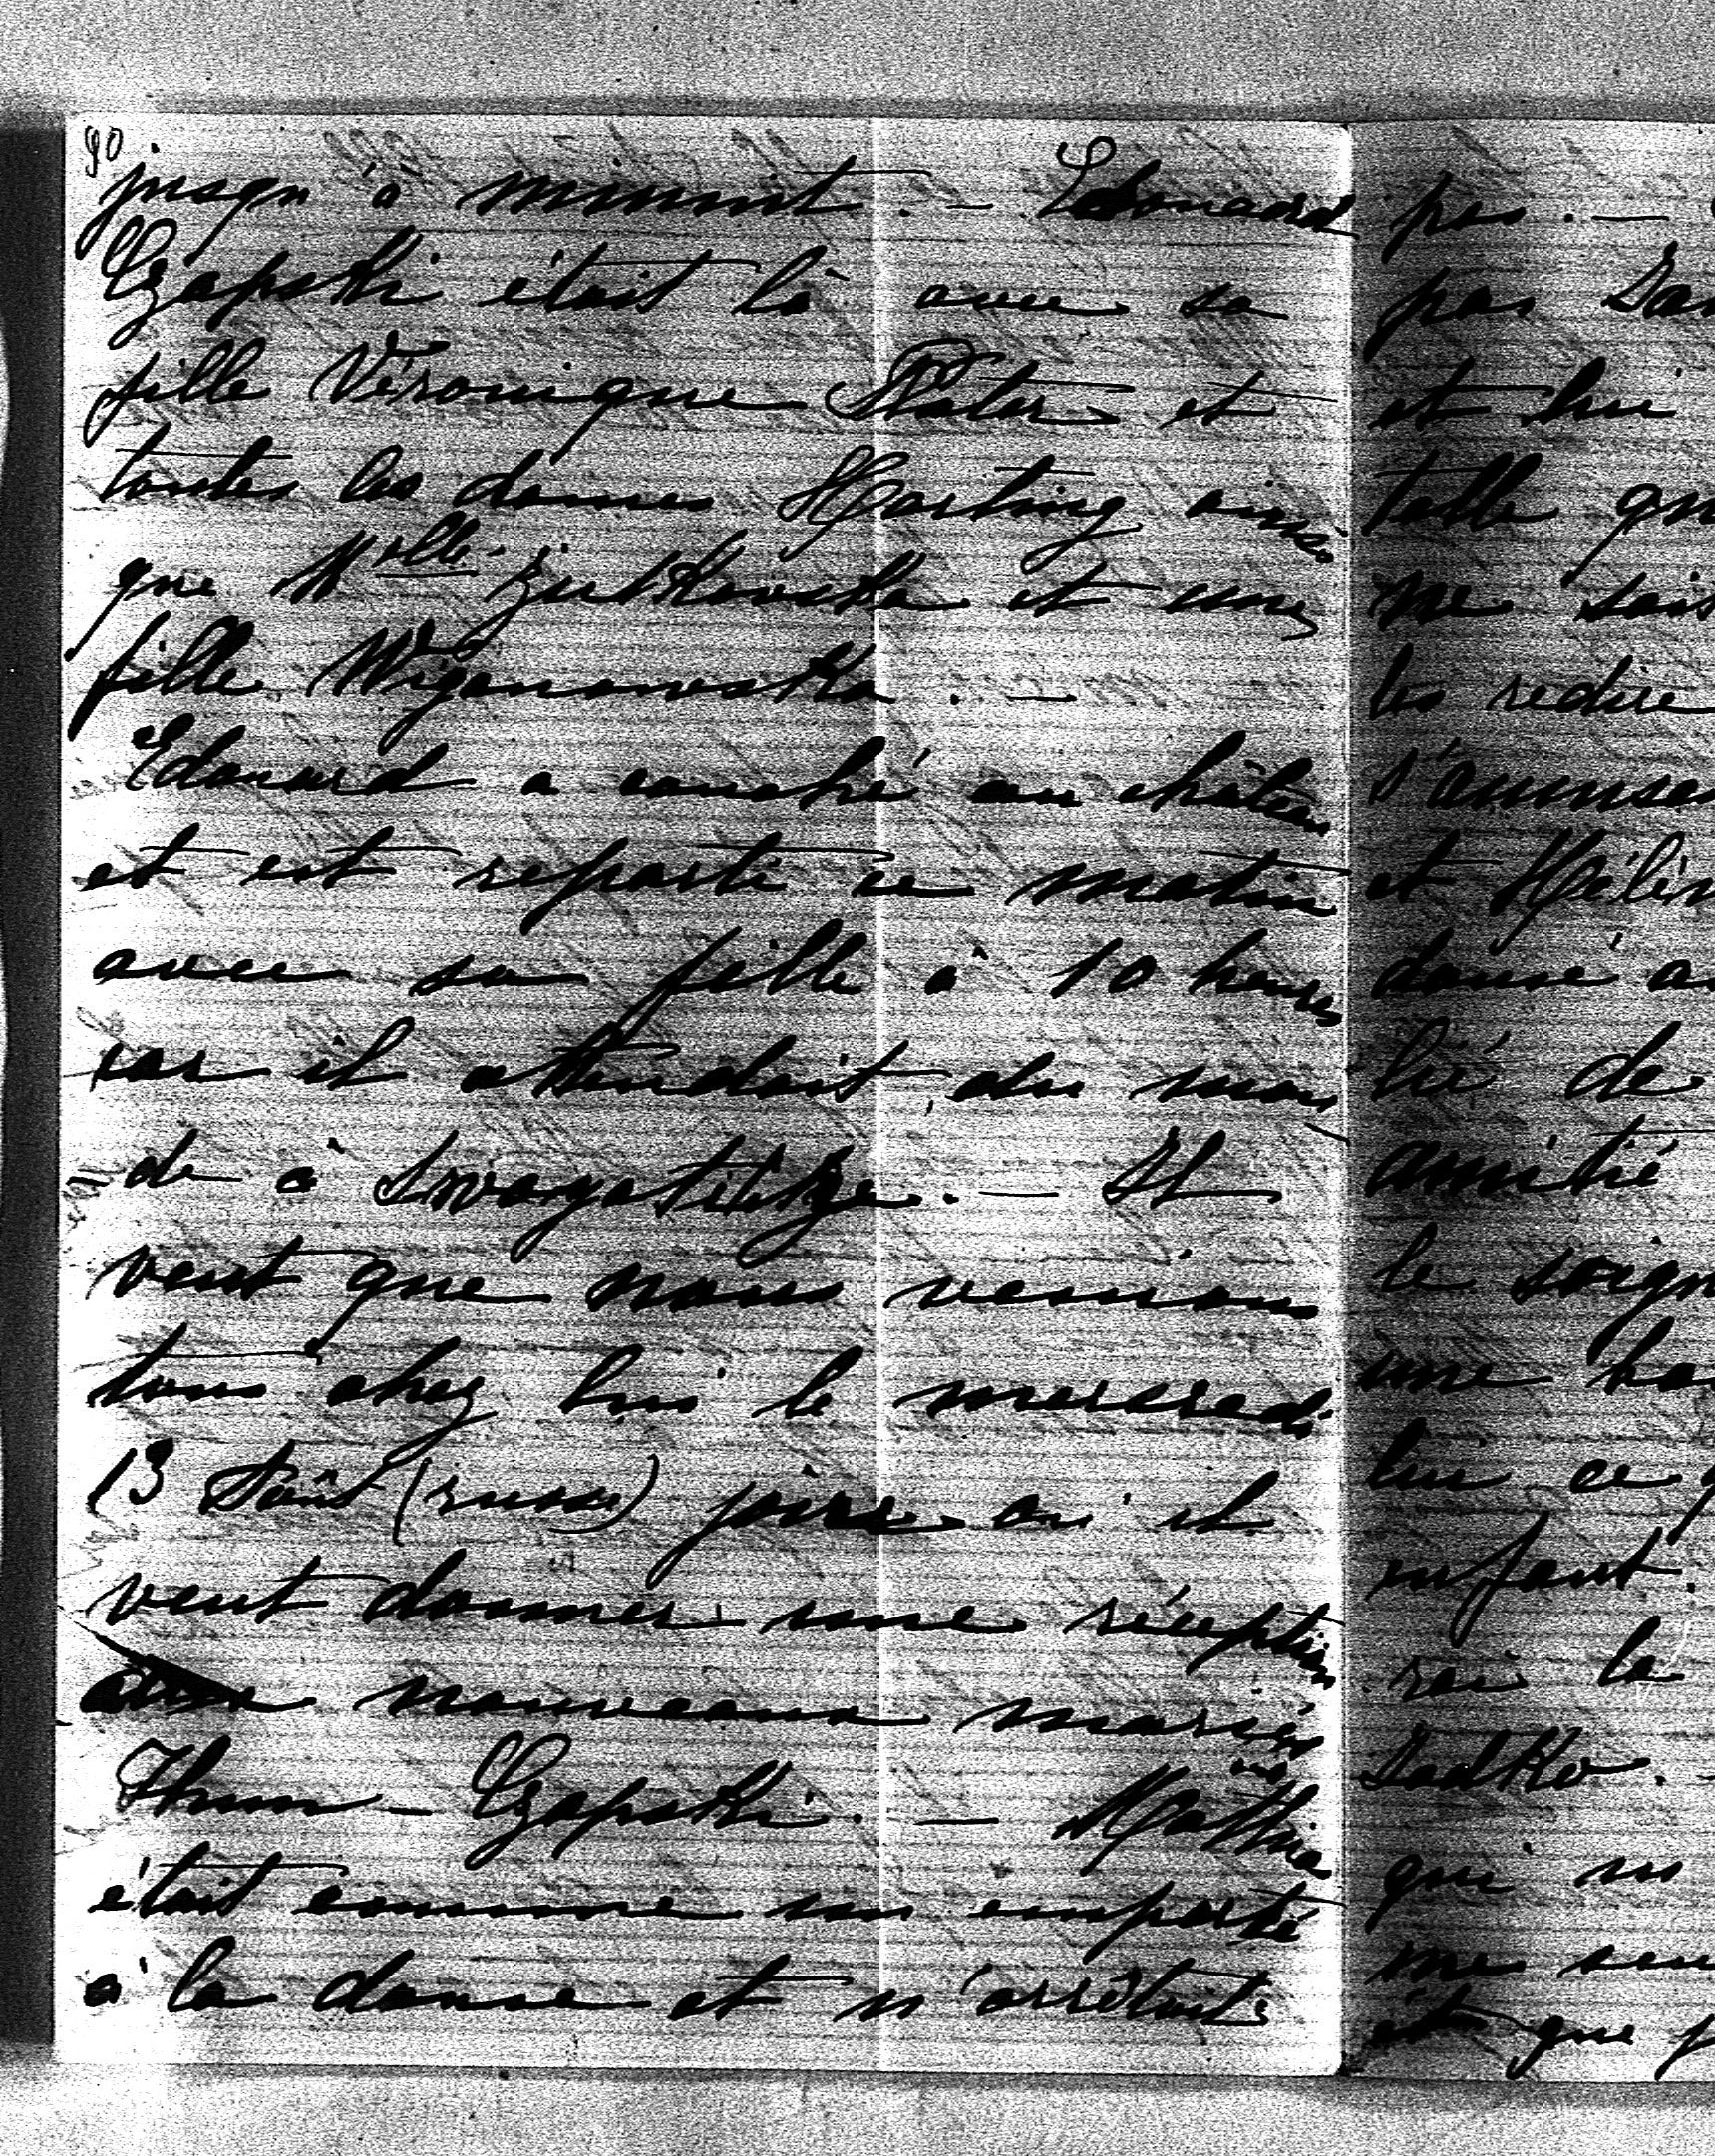 90
jusqu'à minuit. — Edouard
Czapski était là avec sa
fille Véronique Plater et
toutes les dames Harting ainsi
que Mlle. Żułkowska et une
fille Wiganowska. —
Edouard a couché au château
et est reparti ce matin
avec sa fille à 10 heures
car il attendait du mon
de à Swoyatitze. — Il
veut que nous venions
tous chez lui le mercredi
13 Août (russe) jour où il
veut donner une réception
aux nouveaux mariés
Thun — Czapski. — Mathias
était comme un emporté
à la danse et n'arrêtait
pas. —
pas
et lui
telle
ne sais
les redire
s'amuser
et
dansé
lié de
amitié
le
une
lui ce
enfant.
rai la
Zadko. —
qui
me
et que